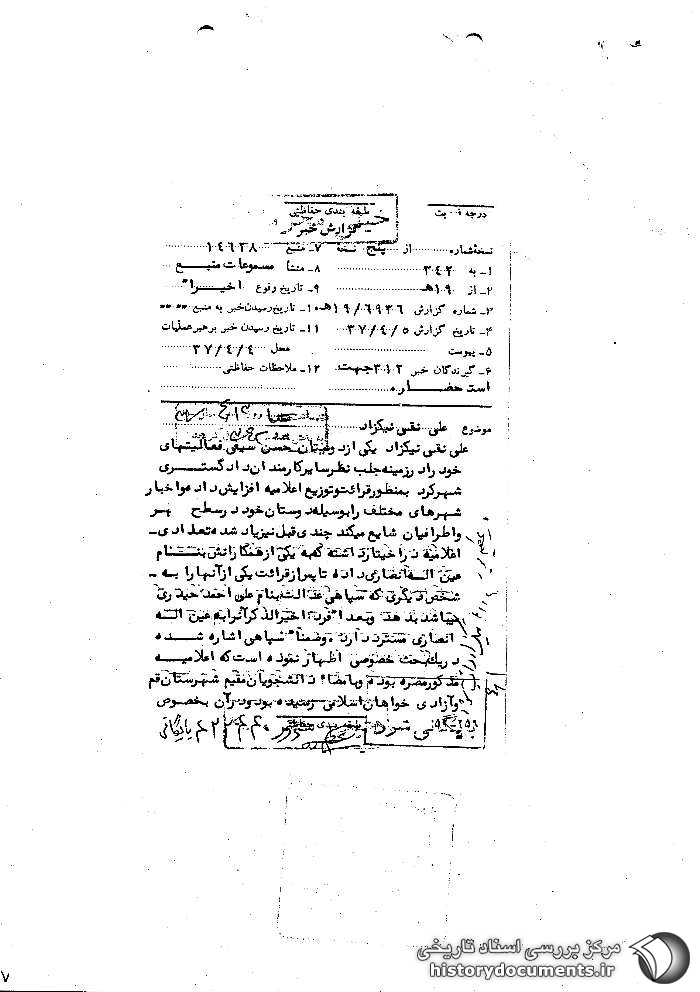 درجه
طبقه بندی حفاظتی
گزارش خبر
نسخه شماره از پنج نسخه
۱ـ به ۳۴۲
۲ـ از ۱۹هـ
۳ـ شماره گزارش ۱۹/۶۹۳۶هـ
۴ـ تاریخ گزارش ۳۷/۴/۵
۵ـ پیوست
۶ـ گیرندگان خبر ۳۱۲ جهت
استحضار
۷ـ منبع ۱۴۶۳۸
۸ـ منشأ مسموعات منبع
۹ـ تاریخ وقوع اخیرا"
۱۰ـ تاریخ رسیدن خبر به منبع
۱۱ـ تاریخ رسیدن خبر برهبر عملیات
محل ۳۷/۴/۴
۱۲ـ ملاحظات حفاظتی
موضوع علی نقی نیکزاد
علی نقی نیکزاد یکی از دوستان حسن سیفی فعالیتهای
خود را در زمینه جلب نظر سایر کارمندان دادگستری
شهرکرد بمنظور قرائت و توزیع اعلامیه افزایش داده و اخبار
شهرهای مختلف را بوسیله دوستان خود در سطح
و اطرافیان شایع میکند چندی قبل نیز یاد شده تعدادی ـ
اعلامیه در اختیار داشته که به یکی از همکارانش بنام
عین اله انصاری داده تا پس از قرائت یکی از آنها را به ـ
شخص دیگری که سپاهی عدالت بنام علی احمد حیدری
میباشد بدهد و بعدا" فرد اخیرالذکر آنرا به عین اله
انصاری مسترد دارد وضمنا" سپاهی اشاره شده
در یک بحث خصوصی اظهار نموده است که اعلامیه
مذکور مضره بوده و بامضاء دانشجویان مقیم شهرستان قم
و آزادی خواهان اسلامی رسیده بود و در آن بخصوص
طبقه بندی حفاظتی
مرکز بررسی اسناد تاریخی
historydocuments.ir
۷